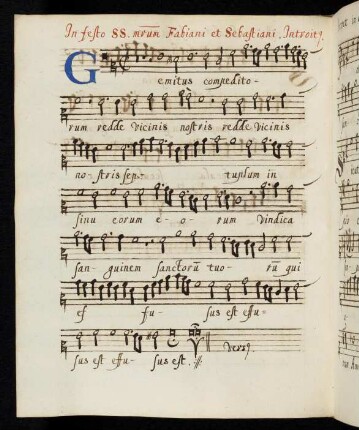 In festo SS. mrūm Fabiani et Sebastiani, Introitꝰ
Gemitus compedito-
rum redde vicinis nostris redde vicinis
no- stris sep- tuplum in
sinu eorum e- o- rum Vindica
san- guinem sanctorū tuo- rū qui
ef fu- sus est effu-
sus est effu- sus est.
Versꝰ